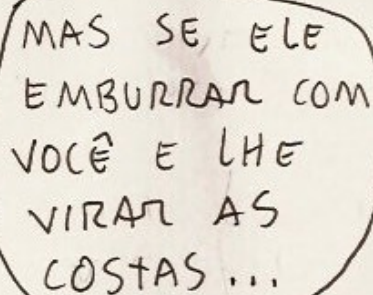 MAS SE ELE
EMBURRAR COM
VOCÊ E LHE
VIRAR AS
COSTAS...